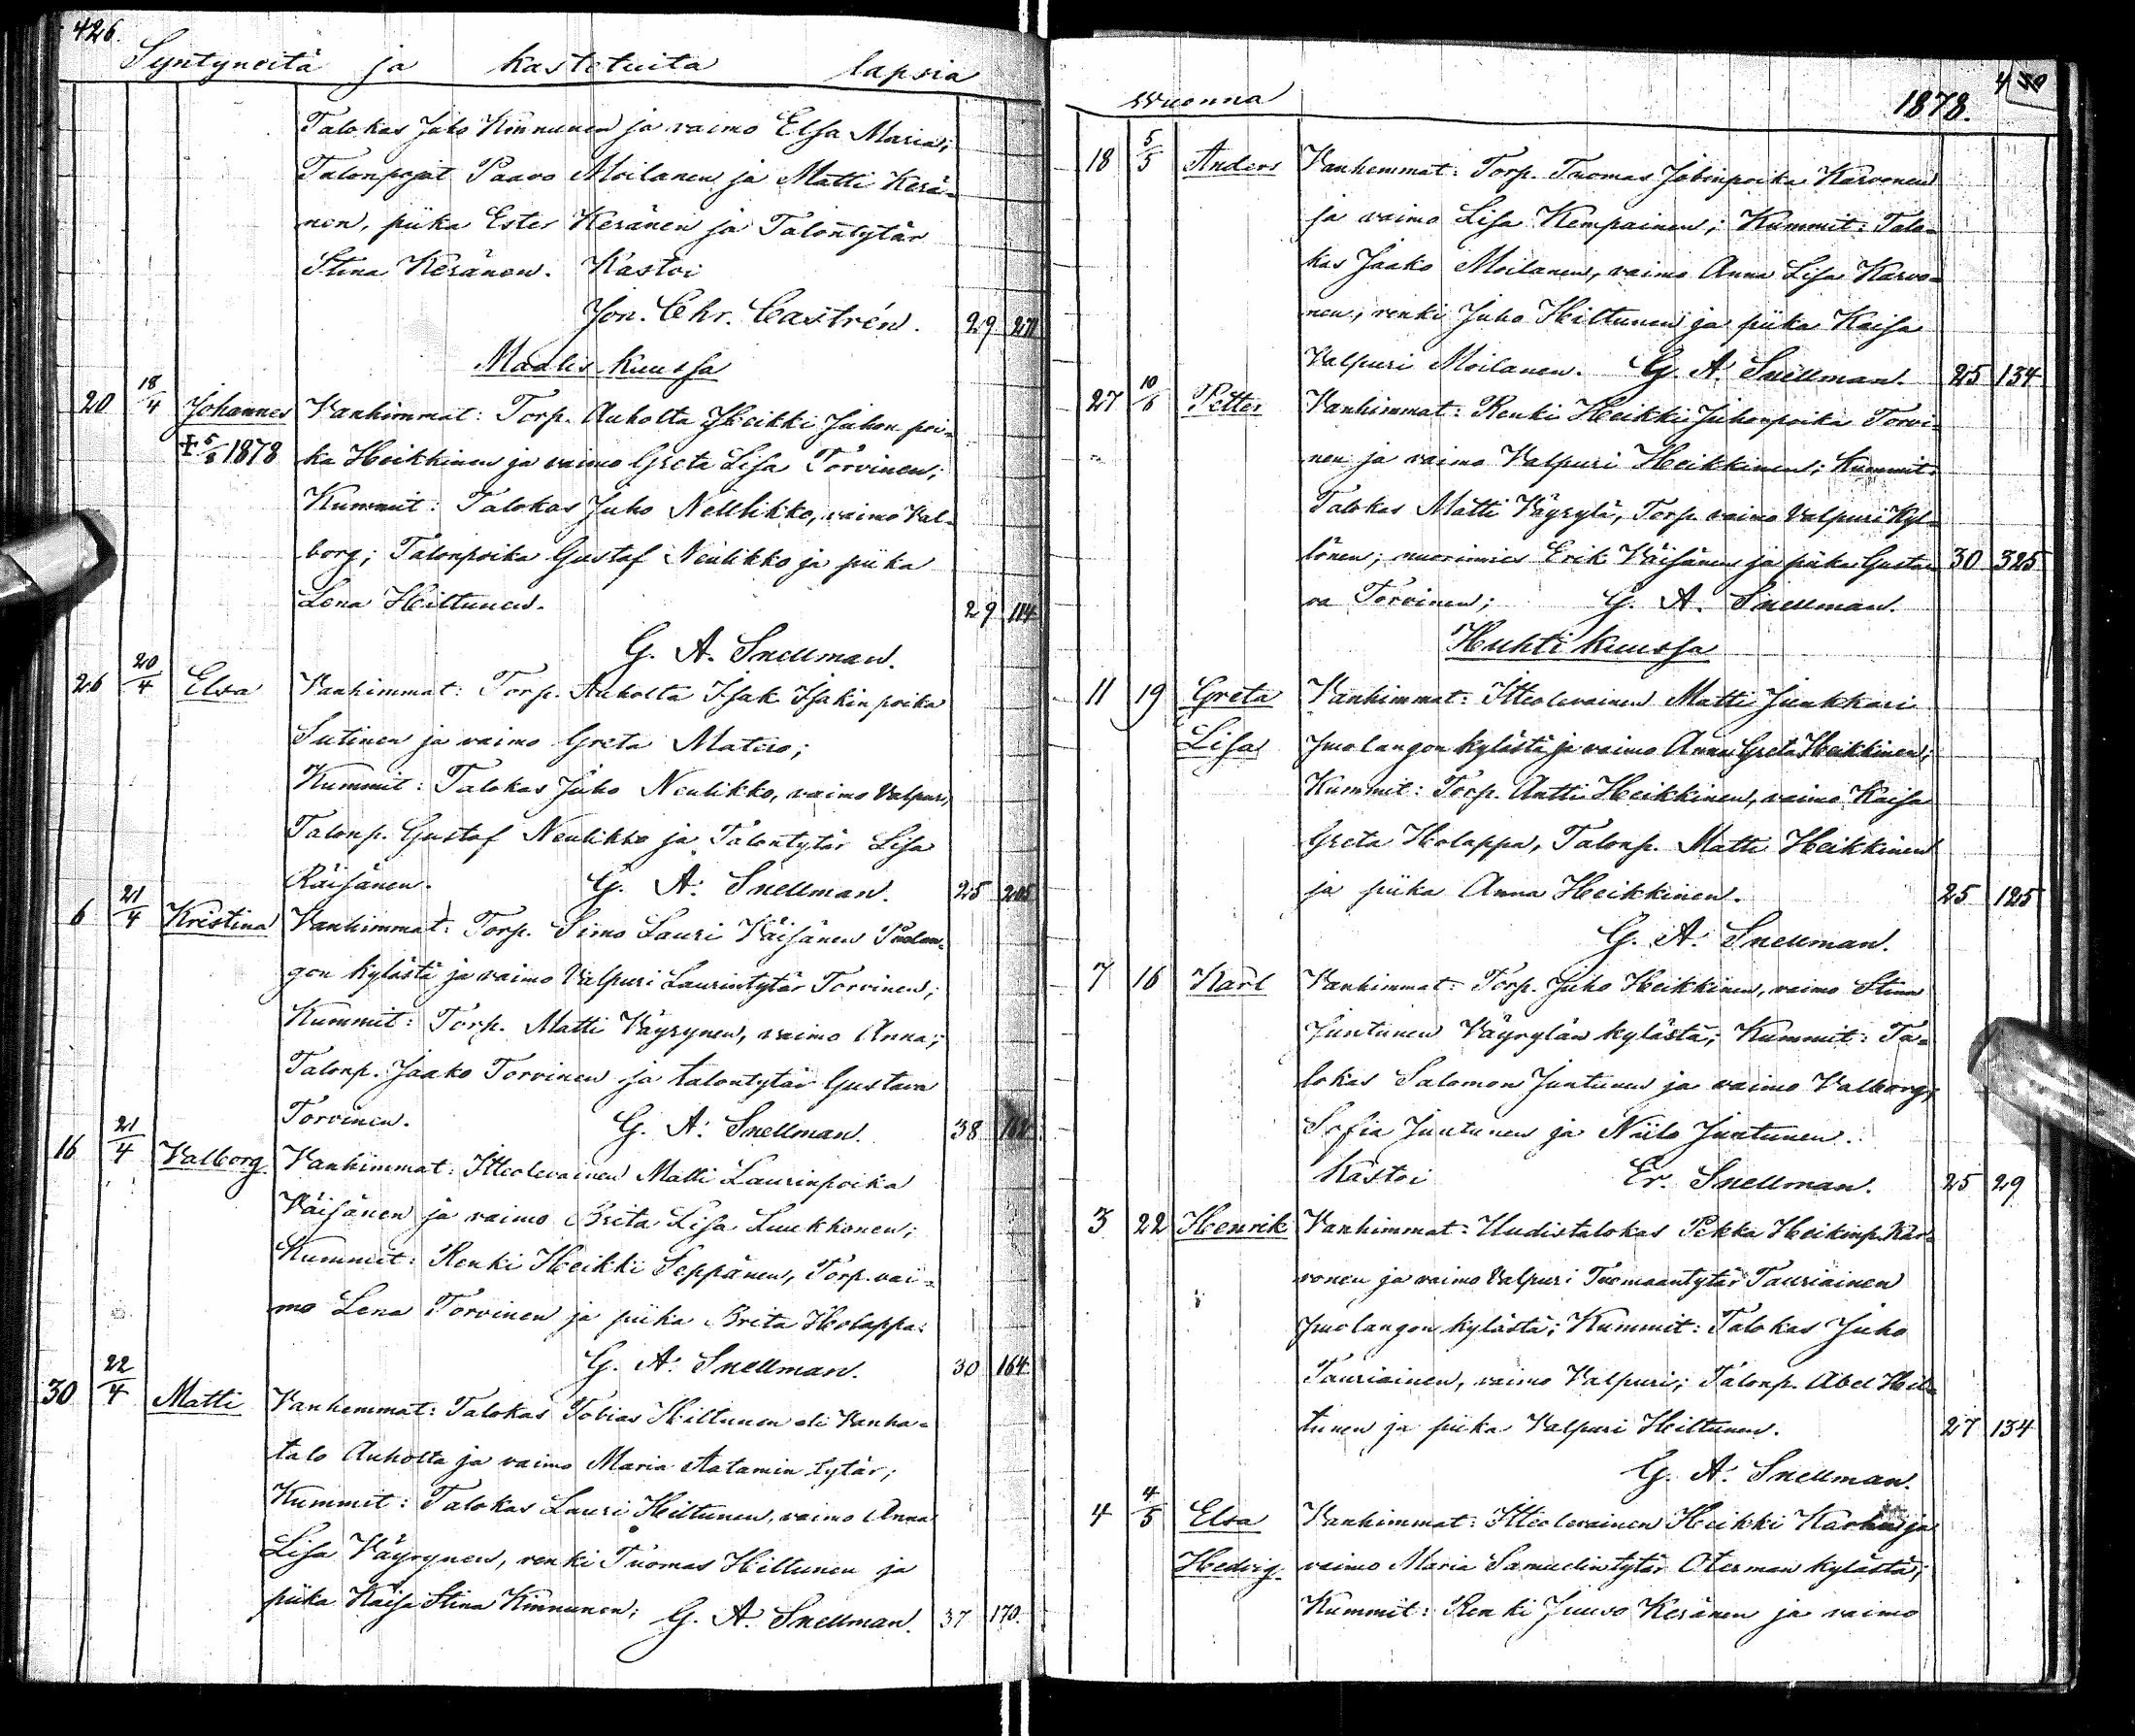 426.
Syntyneitä ja kastetuita lapsia
Talokas Juho Kinnunen ja vaimo Elsa Maria;
Talonpojat Paavo Moilanen ja Matti Kerä-
nen, piika Ester Keränen ja Talontytär
Stina Keränen. Kastoi
Jon. Chr. Castrén. 29
Maalis kuussa
20 18/4 Johannes Vanhimmat: Torp. Auholta Heikki Juhon poi-
1878 ka Heikkinen ja vaimo Greta Lisa Torvinen;
Kummit: Talokas Juho Neulikko, vaimo Val-
borg; Talonpoika Gustaf Neulikko ja piika
Lena Hiltunen. 29 114
G. A. Snellman.
26 20/4 Elsa Vanhimmat: Torp. Auholta Isak Isakin poika
Sutinen ja vaimo Greta Matero;
Kummit: Talokas Juho Neulikko, vaimo Valpuri,
Talonp. Gustaf Neulikko ja Talontytär Lisa
Räisänen. G. A. Snellman. 25 205
6 21/4 Kristina Vanhimmat: Torp. Simo Lauri Väisänen Puolan-
gon kylästä ja vaimo Valpuri Laurintytär Torvinen;
Kummit: Torp. Matti Väyrynen, vaimo Anna;
Talonp. Jaako Torvinen ja talontytär Gustava
Torvinen. G. A. Snellman. 38
16 21/4 Valborg Vanhimmat: Itteolevainen Matti Laurinpoika
Väisänen ja vaimo Brita Lisa Luukkonen;
Kummit: Renki Heikki Seppänen, Torp. vai-
mo Lena Torvinen ja piika Brita Holappa.
G. A. Snellman. 30 164
30 22/4 Matti Vanhemmat: Talokas Tobias Hiltunen eli Vanha-
talo Auholta ja vaimo Maria Aatamin tytär;
Kummit: Talokas Lauri Hiltunen, vaimo Anna
Lisa Väyrynen, renki Tuomas Hiltunen ja
piika Kaisa Stina Kinnunen; G. A. Snellman. 37 170.
Wuonna 1878.
18 5/5 Anders Vanhemmat: Torp. Tuomas Jobinpoika Karvonen
ja vaimo Lisa Kempainen; Kummit: Talo-
kas Jaako Moilanen, vaimo Anna Lisa Karvo-
nen; renki Juho Hiltunen ja piika Kaisa
Valpuri Moilanen. G. A. Snellman. 25 134
27 10/6 Petter Vanhimmat: Renki Heikki Juhonpoika Torvi-
nen ja vaimo Valpuri Heikkinen; Kummit:
Talokas Matti Väyrylä, Torp. vaimo Valpuri Kyl-
lönen; nuorimies Erik Väisänen ja piika Gusta- 30 325
va Torvinen; G. A. Snellman.
Huhti kuussa
11 19 Greta Vanhimmat: Itteolevainen Matti Junkkari
Lisa Puolangon kylästä ja vaimo Anna Greta Heikkinen;
Kummit: Torp. Antti Heikkinen, vaimo Kaisa
Greta Holappa, Talonp. Matti Heikkinen
ja piika Anna Heikkinen. 25 125
G. A. Snellman.
7 16 Karl Vanhimmat: Torp. Juho Heikkinen, vaimo Stina
Juntunen Väyrylän kylästä; Kummit: Ta-
lokas Salomon Juntunen ja vaimo Valborg;
Sofia Juntunen ja Niilo Juntunen.
Kastoi Er. Snellman. 25 29
3 22 Henrik Vanhimmat: Uudistalokas Pekka Heikinp. Kar-
vonen ja vaimo Valpuri Tuomaantytär Tauriainen
Puolangon kylästä; Kummit: Talokas Juho
Tauriainen, vaimo Valpuri; Talonp. Abel Hil-
tunen ja piika Valpuri Hiltunen. 27 134
G. A. Snellman.
4 4/5 Elsa Vanhimmat: Itteolevainen Heikki Karhu ja
Hedvig. vaimo Maria Samuelin tytär Oterman kylästä;
Kummit: Renki Juuso Keränen ja vaimo